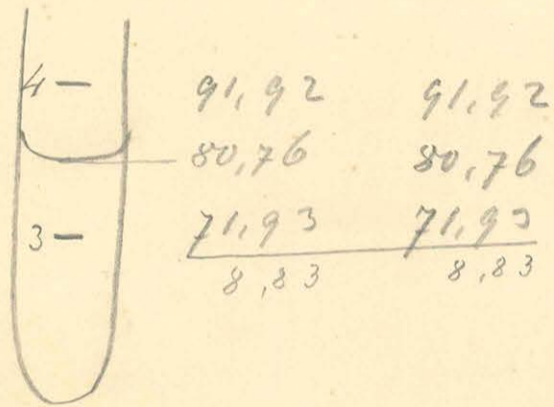 4 — 91,92 91,92
80,76 80,76
3 — 71,93 71,93
8,83 8,83